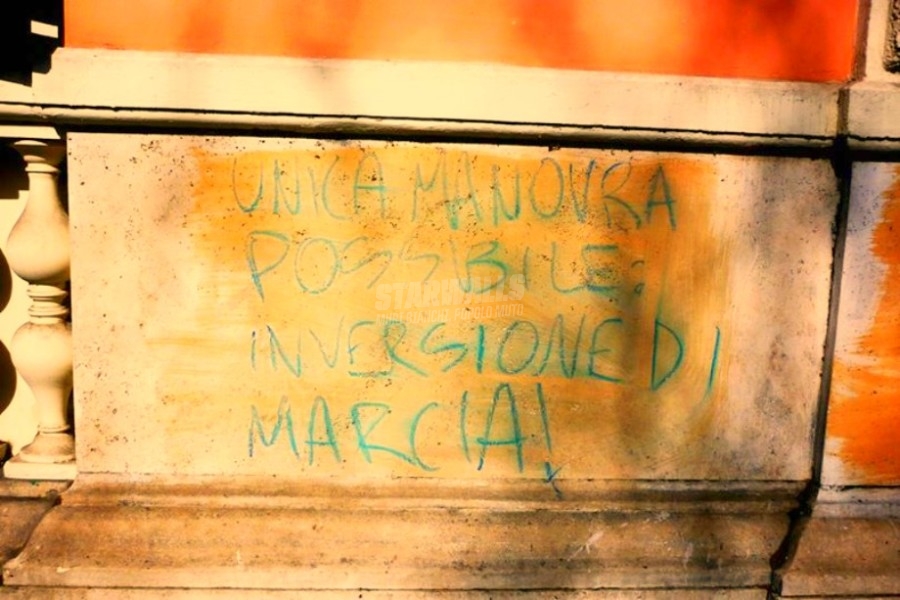 UNICA MANOVRA
POSSIBILE:
INVERSIONE DI
MARCIA!
STARWALLS